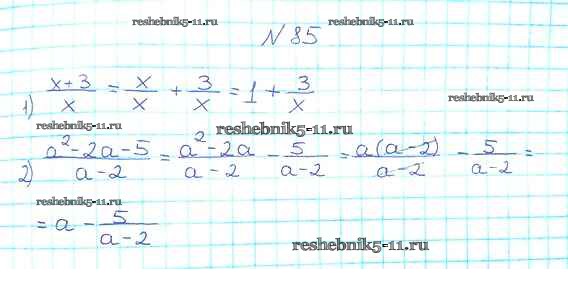 reshebnik5-11.ru reshebnik5-11.ru
№ 85
1) (x+3)/x = x/x + 3/x = 1 + 3/x
reshebnik5-11.ru
reshebnik5-11.ru reshebnik5-11.ru
2) (a²-2a-5)/(a-2) = (a²-2a)/(a-2) - 5/(a-2) = a(a-2)/(a-2) - 5/(a-2) =
reshebnik5-11.ru
= a - 5/(a-2)
reshebnik5-11.ru